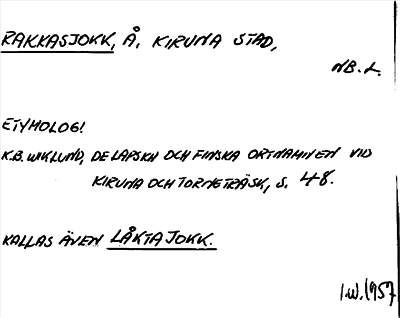 RAKKASJOKK, Å, KIRUNA STAD,
NB. L.
ETYMOLOGI
K.B. WIKLUND, DE LAPSKA OCH FINSKA ORTNAMNEN VID
KIRUNA OCH TORNETRÄSK, S. 48.
KALLAS ÄVEN LÅKTAJOKK.
I.W. 1957